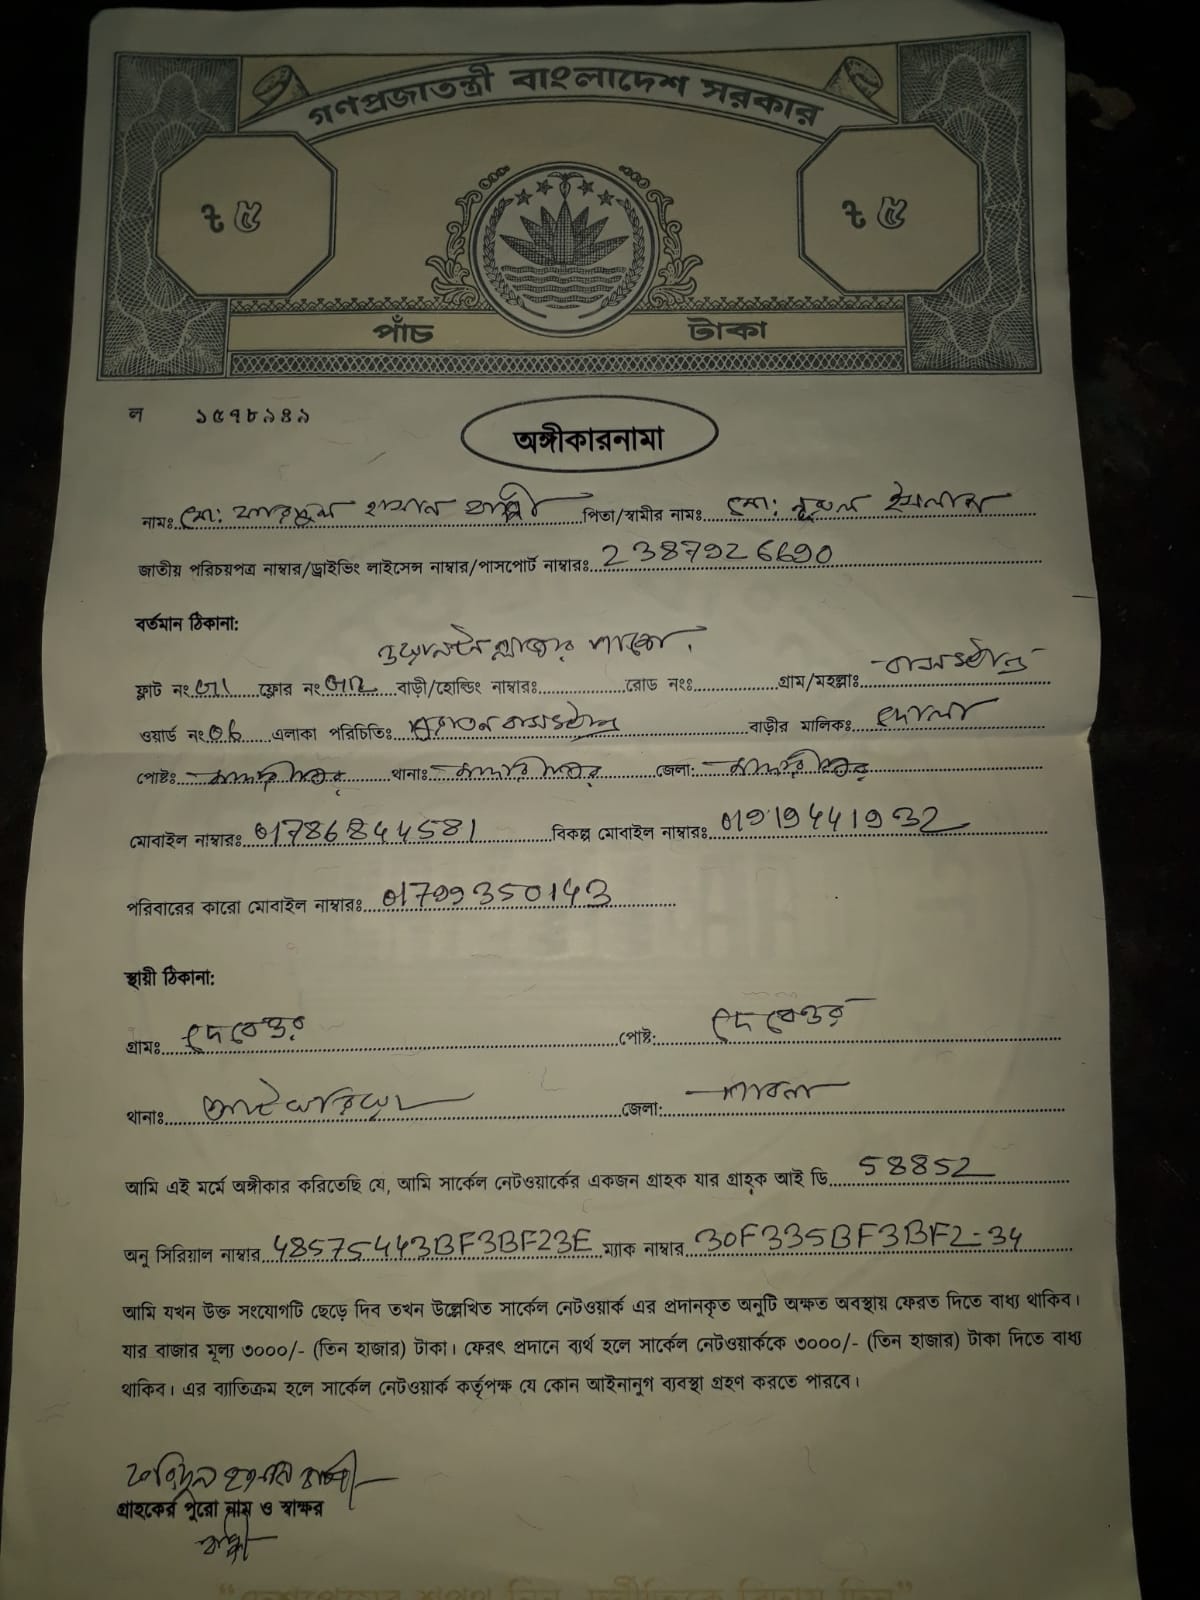 গণপ্রজাতন্ত্রী বাংলাদেশ সরকার
৳ ৫ ৳ ৫
পাঁচ টাকা
ল ১৫৭৮৯৪৯
অঙ্গীকারনামা
নামঃ মো: ফরিদুল হাসান বাপ্পী পিতা/স্বামীর নামঃ মো: নুরুল ইসলাম
জাতীয় পরিচয়পত্র নাম্বার/ড্রাইভিং লাইসেন্স নাম্বার/পাসপোর্ট নাম্বারঃ 2387926690
বর্তমান ঠিকানা:
ফ্লাট নং ফ্লোর নং বাড়ী/হোল্ডিং নাম্বারঃ রোড নং গ্রাম/মহল্লাঃ বাসস্ট্যান্ড
ওয়ার্ড নং 06 এলাকা পরিচিতিঃ পুরাতন বাসস্ট্যান্ড বাড়ীর মালিকঃ
পোষ্টঃ মাদারীপুর থানাঃ মাদারীপুর জেলা: মাদারীপুর
মোবাইল নাম্বারঃ 01786844581 বিকল্প মোবাইল নাম্বারঃ 01919441932
পরিবারের কারো মোবাইল নাম্বারঃ 01799350143
স্থায়ী ঠিকানা:
গ্রামঃ দেবোত্তর পোষ্ট: দেবোত্তর
থানাঃ আটঘরিয়া জেলা: পাবনা
আমি এই মর্মে অঙ্গীকার করিতেছি যে, আমি সার্কেল নেটওয়ার্কের একজন গ্রাহক যার গ্রাহক আই ডি 58852
অনু সিরিয়াল নাম্বার 48575443BF3BF23E ম্যাক নাম্বার 30F335BF3BF2-34
আমি যখন উক্ত সংযোগটি ছেড়ে দিব তখন উল্লেখিত সার্কেল নেটওয়ার্ক এর প্রদানকৃত অনুটি অক্ষত অবস্থায় ফেরত দিতে বাধ্য থাকিব।
যার বাজার মূল্য ৩০০০/- (তিন হাজার) টাকা। ফেরৎ প্রদানে ব্যর্থ হলে সার্কেল নেটওয়ার্ককে ৩০০০/- (তিন হাজার) টাকা দিতে বাধ্য
থাকিব। এর ব্যাতিক্রম হলে সার্কেল নেটওয়ার্ক কর্তৃপক্ষ যে কোন আইনানুগ ব্যবস্থা গ্রহণ করতে পারবে।
ফরিদুল হাসান বাপ্পী
গ্রাহকের পুরো নাম ও স্বাক্ষর
বাপ্পী